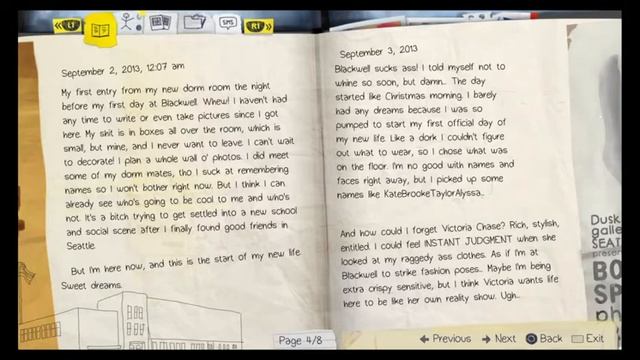 L1
SMS
R1
September 2, 2013, 12:07 am
My first entry from my new dorm room the night
before my first day at Blackwell. Whew! I haven't had
any time to write or even take pictures since I got
here. My shit is in boxes all over the room, which is
small, but mine, and I never want to leave. I can't wait
to decorate! I plan a whole wall o' photos. I did meet
some of my dorm mates, tho I suck at remembering
names so I won't bother right now. But I think I can
already see who's going to be cool to me and who's
not. It's a bitch trying to get settled into a new school
and social scene after I finally found good friends in
Seattle.
But I'm here now, and this is the start of my new life.
Sweet dreams.
September 3, 2013
Blackwell sucks ass! I told myself not to
whine so soon, but damn... The day
started like Christmas morning. I barely
had any dreams because I was so
pumped to start my first official day of
my new life. Like a dork I couldn't figure
out what to wear, so I chose what was
on the floor. I'm no good with names and
faces right away, but I picked up some
names like KateBrookeTaylorAlyssa...
And how could I forget Victoria Chase? Rich, stylish,
entitled. I could feel INSTANT JUDGMENT when she
looked at my raggedy ass clothes. As if I'm at
Blackwell to strike fashion poses... Maybe I'm being
extra crispy sensitive, but I think Victoria wants life
here to be like her own reality show. Ugh...
Dusk
galle
SEAT
presen
BO
SP
ph
Page 4/8
Previous
Next
Back
Exit